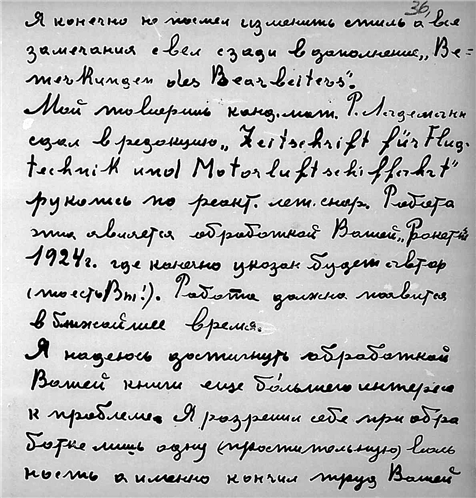 36.
Я конечно но посмел изменить стиль а все
замечания свел сзади в дополнение „Be-
merkungen des Bearbeiters".
Мой товарищ канд. мат. Р. Ладеманн
сдал в редакцию „Zeitschrift für Flug-
technik und Motorluftschiffahrt"
рукопись по реакт. лет. снар. Работа
эта является обработкой Вашей „Ракеты
1924г. где конечно указан будет автор
(тоесть Вы!). Работа должна появится
в ближайшее время.
Я надеюсь достигнуть обработкой
Вашей книги еще большего интереса
к проблеме. Я разрешил себе при обра
ботке лишь одну (простительную) воль
ность а именно кончил труд Вашей